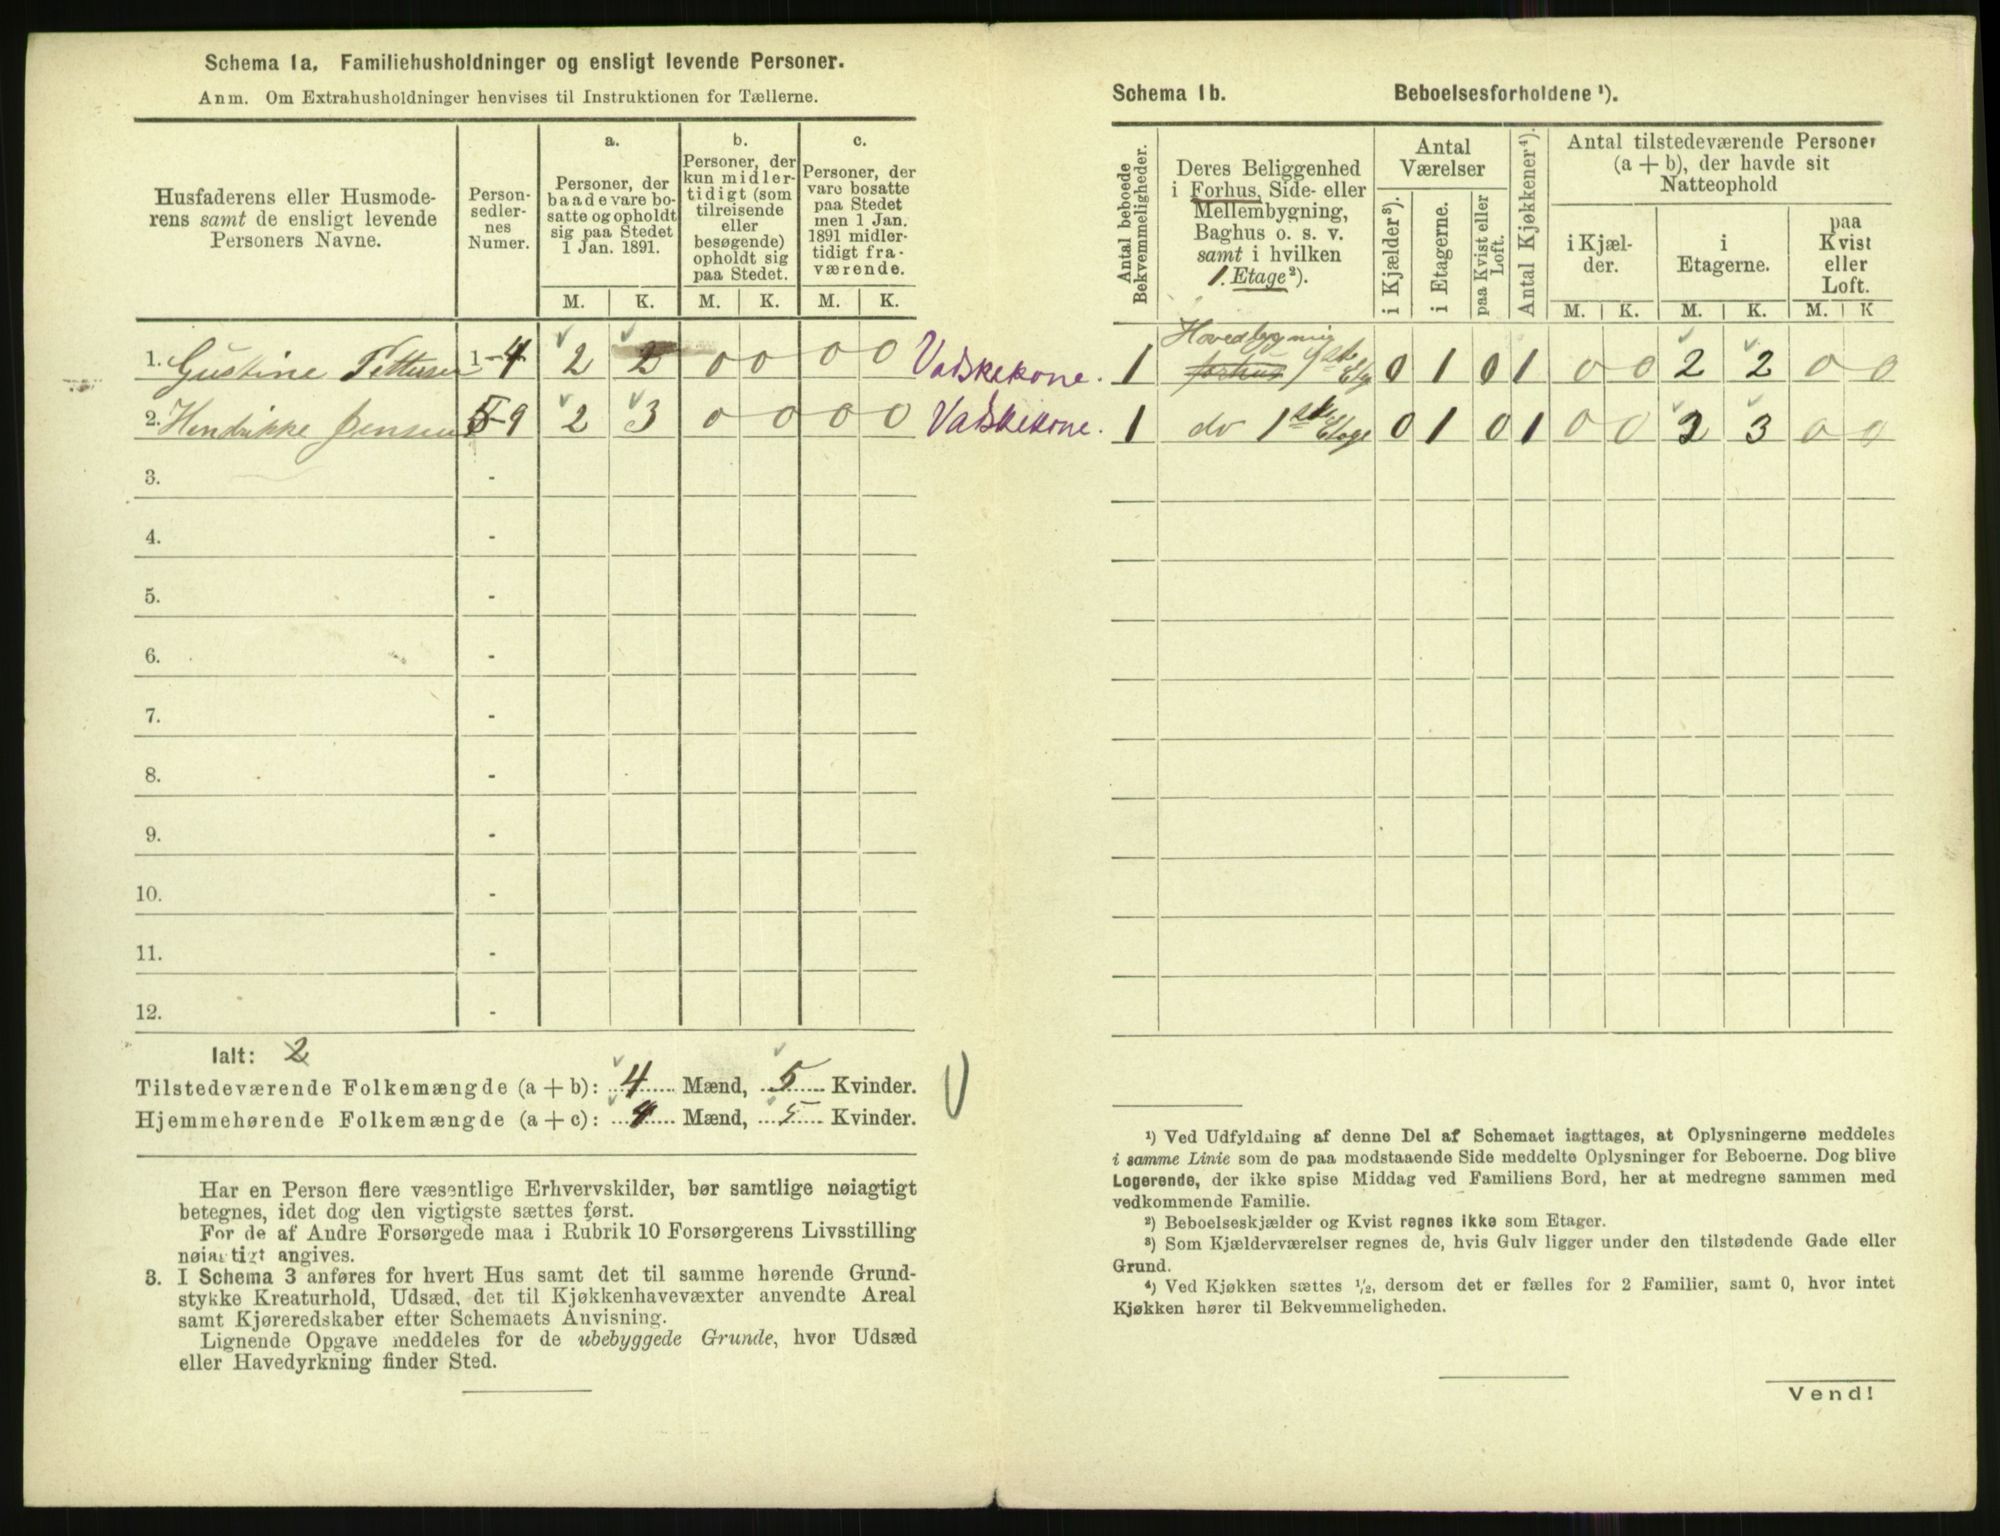 Schema 1a, Familiehusholdninger og ensligt levende Personer.
Anm. Om Extrahusholdninger henvises til Instruktionen for Tællerne.
Husfaderens eller Husmode-
rens samt de ensligt levende
Personers Navne.
Person-
sedler-
nes
Numer.
a.
Personer, der
baade vare bo-
satte og opholdt
sig paa Stedet
1 Jan. 1891.
b.
Personer, der
kun midler-
tidigt (som
tilreisende
eller
besøgende)
opholdt sig
paa Stedet.
c.
Personer, der
vare bosatte
paa Stedet
men 1 Jan.
1891 midler-
tidigt fra-
værende.
M. K. M. K. M. K.
1. Gustine Pettersen 1-4 2 2 0 0 0 0 Vaskekone.
2. Hendrikke Jensen 5-9 2 3 0 0 0 0 Vaskekone.
3. -
4. -
5. -
6. -
7. -
8. -
9. -
10. -
11. -
12. -
Ialt: 2
Tilstedeværende Folkemængde (a + b): 4 Mænd, 5 Kvinder.
Hjemmehørende Folkemængde (a + c): 4 Mænd, 5 Kvinder.
Har en Person flere væsentlige Erhvervskilder, bør samtlige nøiagtigt
betegnes, idet dog den vigtigste sættes først.
For de af Andre Forsørgede maa i Rubrik 10 Forsørgerens Livsstilling
nøiagtigt angives.
3. I Schema 3 anføres for hvert Hus samt det til samme hørende Grund-
stykke Kreaturhold, Udsæd, det til Kjøkkenhavevæxter anvendte Areal
samt Kjøreredskaber efter Schemaets Anvisning.
Lignende Opgave meddeles for de ubebyggede Grunde, hvor Udsæd
eller Havedyrkning finder Sted.
Schema 1b. Beboelsesforholdene ¹).
Antal beboede
Bekvemmeligheder.
Deres Beliggenhed
i Forhus, Side- eller
Mellembygning,
Baghus o. s. v.
samt i hvilken
1. Etage²).
Antal
Værelser
i Kjælder³).
i Etagerne.
paa Kvist eller
Loft.
Antal Kjøkkener⁴).
Antal tilstedeværende Personer
(a + b), der havde sit
Natteophold
i Kjæl-
der.
i
Etagerne.
paa
Kvist
eller
Loft.
M. K. M. K. M. K
Hovedbygning
1 forhus 1ste Etg 0 1 0 1 0 0 2 2 0 0
1 do 1ste Etage 0 1 0 1 0 0 2 3 0 0
¹) Ved Udfyldning af denne Del af Schemaet iagttages, at Oplysningerne meddeles
i samme Linie som de paa modstaaende Side meddelte Oplysninger for Beboerne. Dog blive
Logerende, der ikke spise Middag ved Familiens Bord, her at medregne sammen med
vedkommende Familie.
²) Beboelseskjælder og Kvist regnes ikke som Etager.
³) Som Kjælderværelser regnes de, hvis Gulv ligger under den tilstødende Gade eller
Grund.
⁴) Ved Kjøkken sættes ½, dersom det er fælles for 2 Familier, samt 0, hvor intet
Kjøkken hører til Bekvemmeligheden.
Vend!